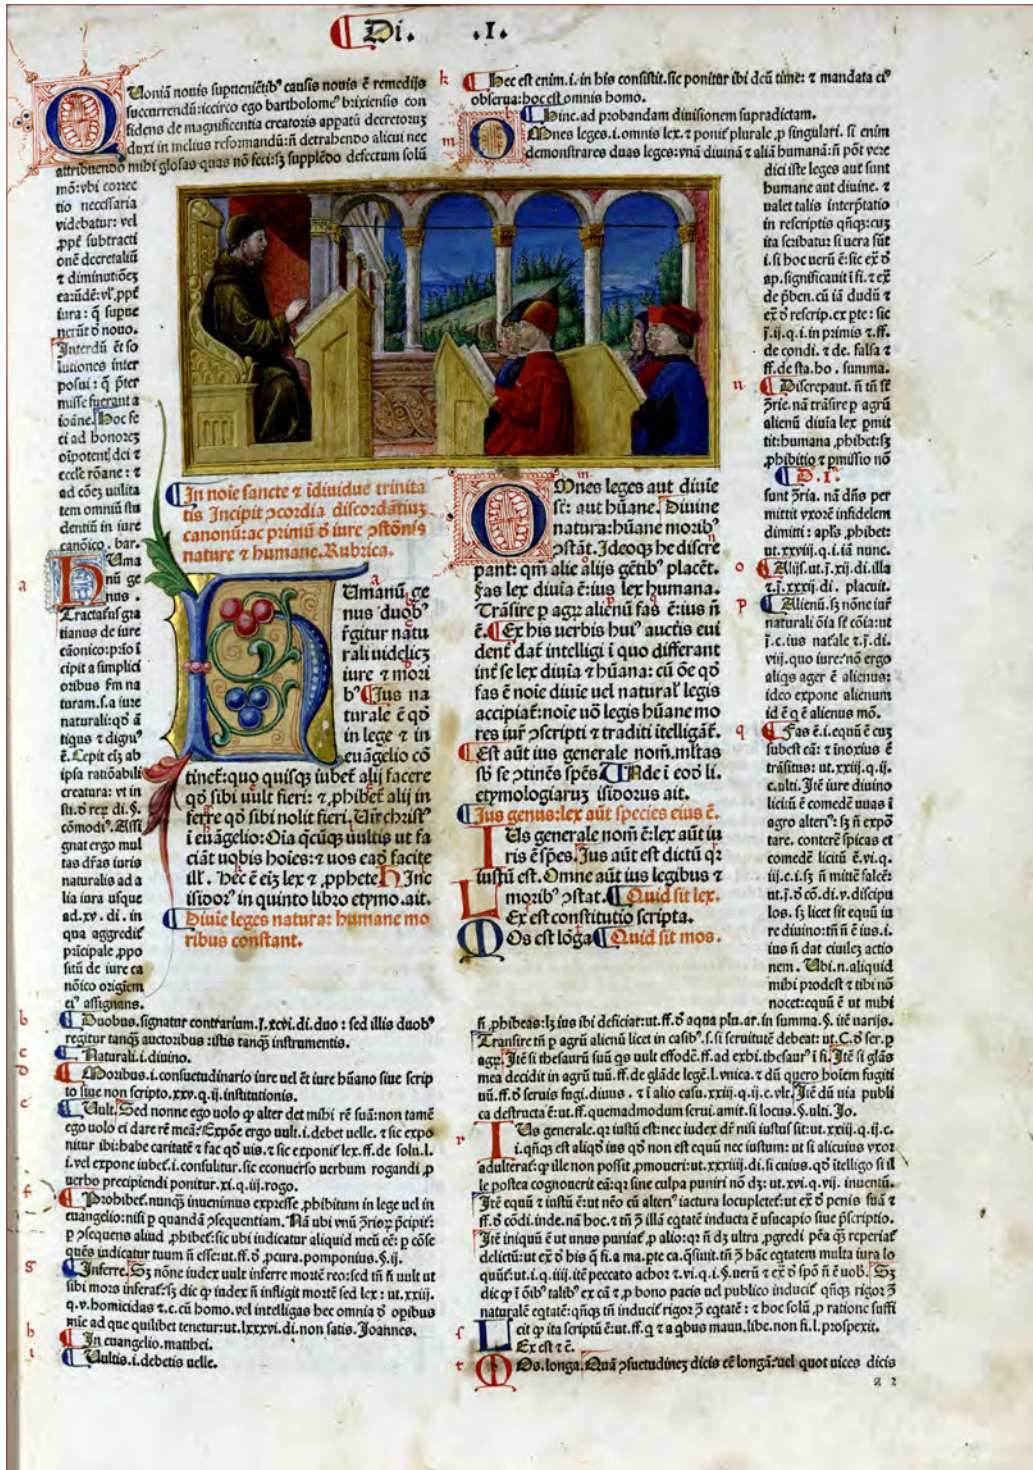 Di. .I.
Quoniã nouis supueniẽtibꝰ causis nouis ẽ remedijs
succurrendũ:iccirco ego bartholomeꝰ brixiensis con
fidens de magnificentia creatoris apparatũ decretoruꝫ
duxi in melius reformandũ:ñ detrahendo alicui nec
attribuendo mihi glosas quas nõ feci:sꝫ supplẽdo defectum solũ
mõ:vbi correc
tio necessaria
videbatur: vel
ꝓpť subtracti
onẽ decretaliũ
⁊ diminutiões
earũdẽ: vľ ꝓpť
iura: q̃ supue
nerũt ð nouo.
Interdũ ẽt so
lutiones inter
posui: q̃ p̃ter
misse fuerant a
ioãne. Hoc fe
ci ad honoreꝫ
oĩpotentꝭ dei ⁊
eccľie rõane: ⁊
ad cõeꝫ utilita
tem omniũ stu
dentiũ in iure
canõico. bar.
a
Huma
nũ ge
nus.
Tractatus gra
tianus de iure
cãonico: p:io ĩ
cipit a simplici
oribus ẜm na
turam.s.a iure
naturali:qð ã
tiqus ⁊ dignꝰ
ẽ. Cepit eiꝫ ab
ipsa ratiõabili
creatura: vt in
sti.ð reꝝ di.§.
cõmodiꝰ. Assi
gnat ergo mul
tas dr̃as iuris
naturalis ad a
lia iura usque
ad.xv. di. in
qua aggredit̃
pricipale ꝓpo
sitũ de iure ca
nõico originem
eiꝰ assignans.
b
Duobus.signatur contrarium.j.xcvi.di.duo: sed illis duobꝰ
regitur tanqꝫ auctoribus:istis tanqꝫ instrumentis.
c
Naturali.i.diuino.
d
Moribus.i.consuetudinario iure uel ẽt iure hũano siue scrip
to siue non scripto.xxv.q.ij.institutionis.
e
Uult. Sed nonne ego uolo ꝙ alter det mihi rẽ suã:non tamẽ
ego uolo ei dare rẽ meã? Expõe ergo uult.i.debet uelle. ⁊ sic expo
nitur ibi:habe caritatẽ ⁊ fac qð uis.⁊ sic exponit̃ lex.ff.de solu.l.
i.vel expone iubet̃.i.consulitur.sic econuerso uerbum rogandi ꝓ
uerbo precipiendi ponitur.xi.q.iij.rogo.
f
Prohibet̃.nunqꝫ inuenimus expresse ꝓhibitum in lege uel in
euangelio:nisi p quandã ↄsequentiam. Nã ubi vnũ ↄ̃rioꝝ p̃cipit̃:
p ↄsequens aliud ꝓhibet̃:sic ubi iudicatur aliquid meũ eẽ: p cõse
quẽs indicatur tuum ñ esse:ut.ff.ð ꝓcura.pomponius.§.ij.
g
Inferre. Sꝫ nõne iudex uult inferre mortẽ reo:sed tñ ñ uult ut
sibi mors inferat̃:sꝫ dic ꝙ iudex ñ infligit mortẽ sed lex: ut.xxiij.
q.v.homicidas ⁊.c.cũ homo.vel intelligas hec omnia ð opibus
mie ad que quilibet tenetur:ut.lxxxvi.di.non satis. Joannes.
h
In euangelio.matthei.
i
Uultis.i.debetis uelle.
In noĩe sancte ⁊ ĩdiuidue trinita
tis Incipit ↄcordia discordãtiuꝫ
canonũ:ac primũ ð iure ↄstõnis
nature ⁊ humane. Rubrica.
a
Humanũ ge
nus duobꝰ
r̃gitur natu
rali uidelicꝫ
iure ⁊ mori
bꝰ Jus na
turale ẽ qð
in lege ⁊ in
euãgelio cõ
tinet̃:quo quisqꝫ iubet̃ alij facere
qð sibi uult fieri: ⁊ ꝓhibet̃ alij in
ferre qð sibi nolit fieri. Uñ christꝰ
ĩ euãgelio: Oĩa q̃cũqꝫ uultis ut fa
ciãt uobis hoĩes:⁊ uos eað facite
ill'. hec ẽ eiꝫ lex ⁊ ꝓphete. Hinc
isidorꝰ in quinto libro etymo.ait.
Diuie leges natura: humane mo
ribus constant.
m
Omnes leges aut diuie
sť: aut hũane. Diuine
natura:hũane moribꝰ
n
ↄstãt. Ideoqꝫ he discre
pant: qm̃ alie alijs gẽtibꝰ placẽt.
Fas lex diuĩa ẽ:ius lex humana.
Trãsire p agꝝ alienũ fas ẽ:ius ñ
ẽ. Ex his uerbis huiꝰ auctiꝰ eui
dent̃ dat̃ intelligi ĩ quo differant
int̃ se lex diuĩa ⁊ hũana: cũ oẽ qð
fas ẽ noĩe diuie uel natural' legis
accipiat̃:noĩe uõ legis hũane mo
res iur̃ ↄscripti ⁊ traditi ĩtelligãt̃.
Est aũt ius generale nom̃.mľtas
sƀ se ↄtinẽs sp̃es. Unde ĩ eoð li.
etymologiaruꝫ isidorus ait.
Jus genus:lex aũt species eius ẽ.
Ius generale nom̃ ẽ:lex aũt iu
ris ẽ sp̃es. Jus aũt est dictũ q2
iustũ est. Omne aũt ius legibus ⁊
moribꝰ ↄstat. Quid sit lex.
Lex est constitutio scripta.
Mos est lõga Quid sit mos.
k
Hec est enim.i.in his consistit.sic ponitur ibi dcũ time: ⁊ mandata eiꝰ
obserua:hoc est omnis homo.
Hinc.ad probandam diuisionem supradictam.
m
Omnes leges.i.omnis lex.⁊ ponit̃ plurale ꝓ singulari. si enim
demonstrares duas leges:vnã diuinã ⁊ aliã humanã:ñ põt vere
dici iste leges aut sunt
humane aut diuine. ⁊
ualet talis interp̃tatio
in rescriptis qñqꝫ:cuꝫ
ita scribatur si uera sũt
i.si hoc uerũ ẽ:sic ex̃ ð
ap.significauit ĩ fi. ⁊ ex̃
de p̃ben.cũ iã dudũ ⁊
ex̃ ð rescrip.ex pte: sic
j̃.ij.q.i.in primis ⁊.ff.
de condi. ⁊ de. falsa ⁊
ff.de sta.ho. summa.
n
Discrepaut. ñ tñ sť
ↄ̃rie. nã trãsire p agrũ
alienũ diuĩa lex pmit
tit:humana ꝓhibet:sꝫ
ꝓhibitio ⁊ pmissio nõ
D. I.
sunt ↄ̃ria. nã dñs per
mittit vxorẽ infidelem
dimitti: apľs ꝓhibet:
ut.xxviij.q.i.iã nunc.
o
Alijs.ut.j̃.xij.di.illa
⁊.j̃.xxxij.di. placuit.
p
Alienũ.sꝫ nõne iur̃
naturali õĩa sť cõĩa:ut
j̃.c.ius nat̃ale ⁊.j̃.di.
viij.quo iure:nõ ergo
aliqs ager ẽ alienus:
ideo expone alienum
id ẽ q̃ ẽ alienus mõ.
q
Fas ẽ.i.equũ ẽ cuꝫ
subest cã: ⁊ inoxius ẽ
trãsitus: ut.xxiij.q.ij.
c.ulti. Itẽ iure diuino
licitũ ẽ comedẽ uuas ĩ
agro alteriꝰ: sꝫ ñ expõ
tare. conterẽ spicas et
comedẽ licitũ ẽ.vi.q.
iij.c.i.sꝫ ñ mittẽ falcẽ:
ut.j̃.ð cõ.di.v.discipu
los. sꝫ licet sit equũ iu
re diuino:tñ ñ ẽ ius.i.
ius ñ dat ciuileꝫ actio
nem. Ubi.n.aliquid
mihi prodest ⁊ tibi nõ
nocet:equũ ẽ ut mihi
ñ ꝓhibeas:lꝫ ius ibi deficiat:ut.ff.ð aqua plu.ar.in summa.§.itẽ varijs.
Transire tñ p agrũ alienũ licet in casibꝰ.s.si seruitutẽ debeat: ut.C.ð ser.p
agꝝ. Itẽ si thesaurũ suũ qs uult effodẽ.ff.ad exbi.thesaurꝰ ĩ fi. Itẽ si glãs
mea decidit in agrũ tuũ.ff.de glãde legẽ.l.vnica.⁊ dũ quero hoĩem fugiti
uũ.ff.ð seruis fugi.diuus. ⁊ ĩ alio casu.xxiij.q.ij.c.vľt. Itẽ dũ uia publi
ca destructa ẽ:ut.ff.quemadmodum serui.amit.si locus.§.ulti. Jo.
r
Ius generale.q2 iustũ est:nec iudex dr̃ nisi iustus sit:ut.xxiij.q.ij.c.
i.qñqꝫ est aliqð ius qð non est equũ nec iustum: ut si alicuius vxor
adulterat̃:ꝙ ille non possit ꝓmoueri:ut.xxxiiij.di.si cuius.qð ĩtelligo si il
le postea cognouerit eã:q2 sine culpa puniri nõ dꝫ: ut.xvi.q.vij. inuentũ.
Itẽ equũ ⁊ iustũ ẽ:ut nẽo cũ alteriꝰ iactura locupletet̃:ut ex̃ ð penis suã ⁊
ff.ð cõdi.inde.nã hoc.⁊ tñ ↄ̃ illã eq̃tatẽ inducta ẽ usucapio siue p̃scriptio.
Itẽ iniquũ ẽ ut unus puniat̃ ꝓ alio:q2 ñ dꝫ ultra ꝓgredi pẽa q̃ꝫ reperiat̃
delictũ:ut ex̃ ð his q̃ fi.a ma.pte ca.q̃siuit.tñ ↄ̃ hãc eq̃tatem multa iura lo
quũt̃:ut.i.q.iiij.itẽ peccato achor ⁊.vi.q.i.§.uerũ ⁊ ex̃ ð spõ ñ ẽ uob̃. Sꝫ
dic ꝙ ĩ õĩbꝰ talibꝰ ex cã ⁊ ꝓ bono pacis uel publico inducit̃ qñqꝫ rigor ↄ̃
naturalẽ eq̃tatẽ: qñqꝫ tñ inducit̃ rigor ↄ̃ eq̃tatẽ: ⁊ hoc solũ ꝓ ratione suffi
cit ꝙ ita scriptũ ẽ:ut.ff.q ⁊ a qbus manu.libe.non fi.l.prospexit.
s
Lex est ⁊ c̃.
t
Mos.longa. Quã ↄsuetudineꝫ dicis eẽ longã? uel quot uices dicis
a 2